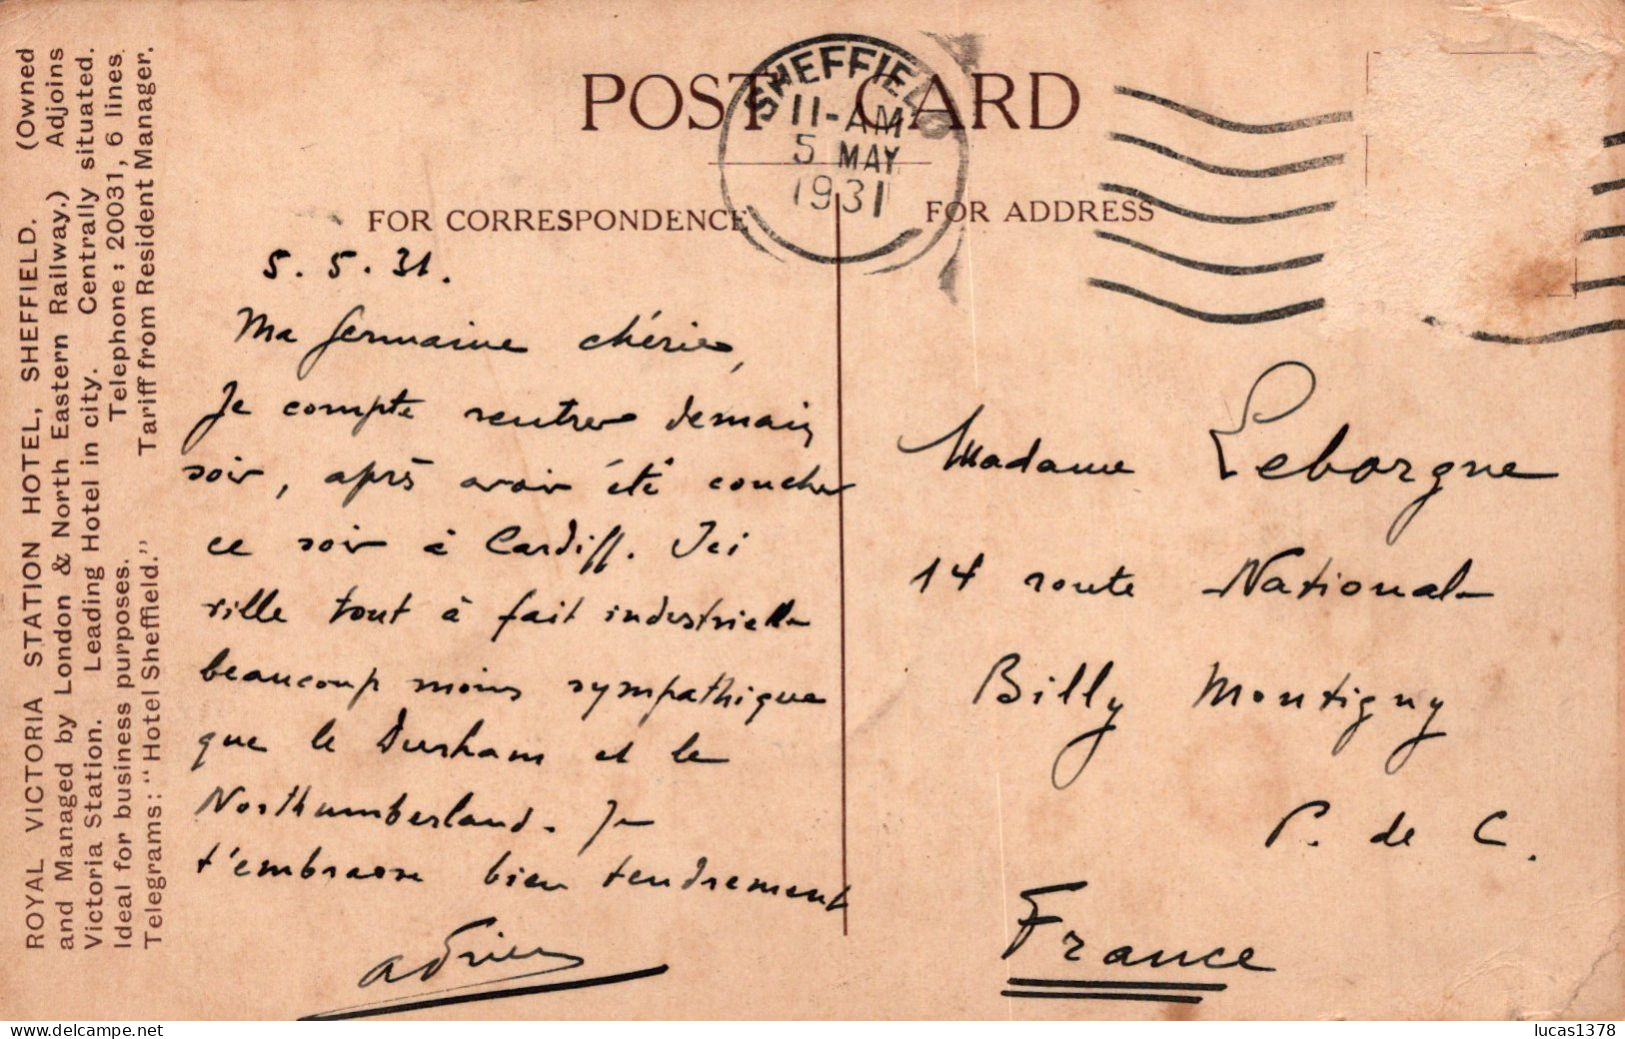 ROYAL VICTORIA STATION HOTEL, SHEFFIELD. (Owned
and Managed by London & North Eastern Railway.) Adjoins
Victoria Station. Leading Hotel in city. Centrally situated.
Ideal for business purposes. Telephone : 20031, 6 lines.
Telegrams: "Hotel Sheffield." Tariff from Resident Manager.
POST CARD
SHEFFIELD
11-AM
5 MAY
1931
FOR CORRESPONDENCE
FOR ADDRESS
5.5.31.
Ma Germaine chérie,
Je compte rentrer demain
soir, après avoir été coucher
ce soir à Cardiff. Ici
ville tout à fait industrielle
beaucoup moins sympathique
que le Durham et le
Northumberland. Je
t'embrasse bien tendrement
Adrien
Madame Leborgne
14 route Nationale
Billy Montigny
P. de C.
France
lucas1378